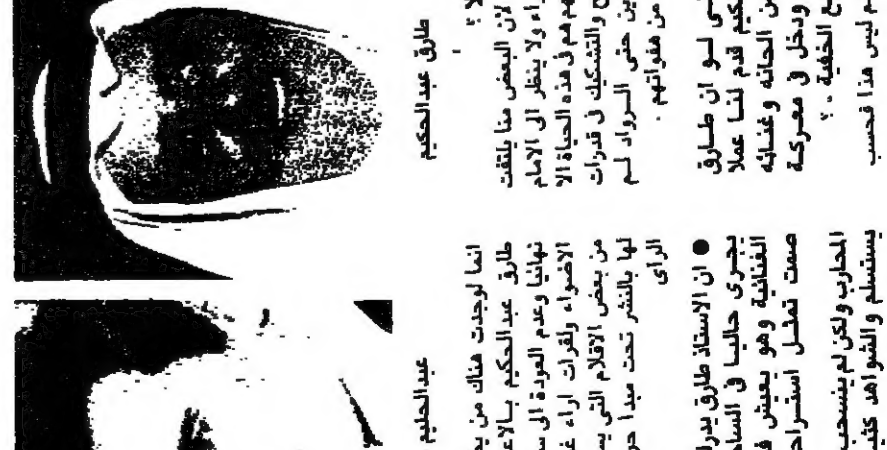 طارق عبدالحكيم
لان البعض منا يلتفت
ولا ينظر الى الامام
هم في هذه الحياة الا
والتشكيك في قدرات
حتى الرواد لم
من هفواتهم .
لو ان طارق
قدم لنا عملا
الحانه وغنائه
ودخل في معركة
الخفية .؟
ليس هذا فحسب
عبدالحليم
انما لوجدت هناك من
طارق عبدالحكيم
نهائيا وعدم العودة الى
الاضواء ولقرات اراء
من بعض الاقلام التي
لها بالنشر تحت مبدا
الراى
● ان الاستاذ طارق
يجرى حاليا في
الغنائية وهو يعيش
صمت تمثل
المحارب ولكن لم ينسحب
يستسلم والشواهد